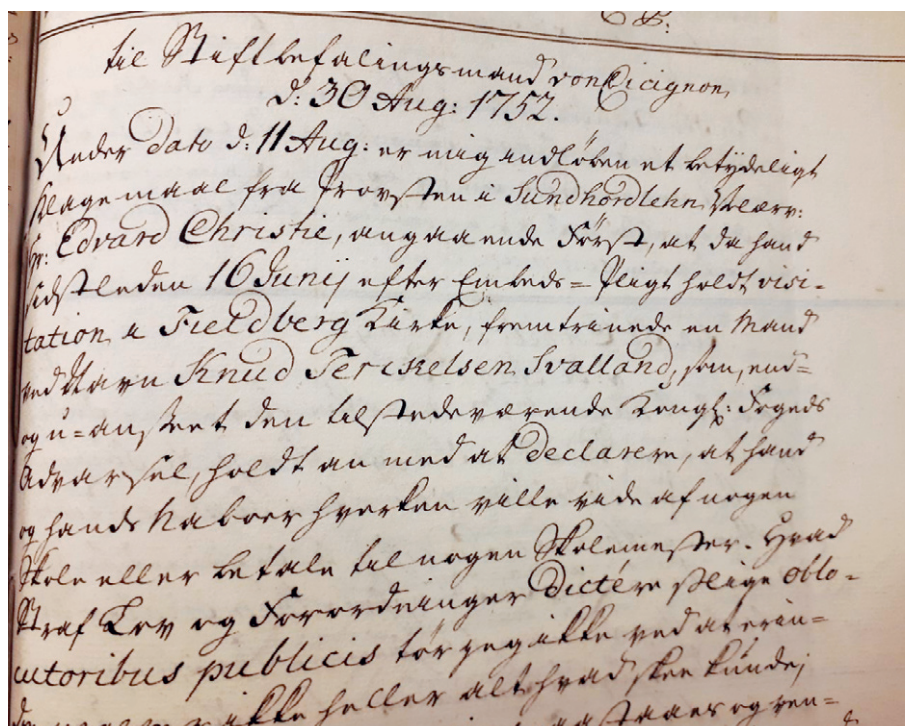 til Stiftbefalingsmand von Cicignon,
d: 30 Aug: 1752.
Under Dato d: 11 Aug: er mig indlöben et betydeligt
Klagemaal fra Provsten i Sundhordlehn Velærv:
Hr: Edvard Christie, angaaende Först, at da hand
sidstleden 16 Junij efter Embeds=Pligt holdt visi-
tation i Fieldberg Kirke, fremtrinede en Mand
ved Navn Knud Terckelsen Svalland, som, end-
og u-anseet den tilstedeværende Kongl: Fogeds
Advarsel, holdt an med at declarere, at hand
og hands Naboer hverken ville vide af nogen
Skole eller betale til nogen Skolemester. Hvad
Straf Lov og Forordninger dictére slige oblo-
cutoribus publicis tör jeg ikke ved at erin-
ikke heller alt hvad skee kunde,
og ven-